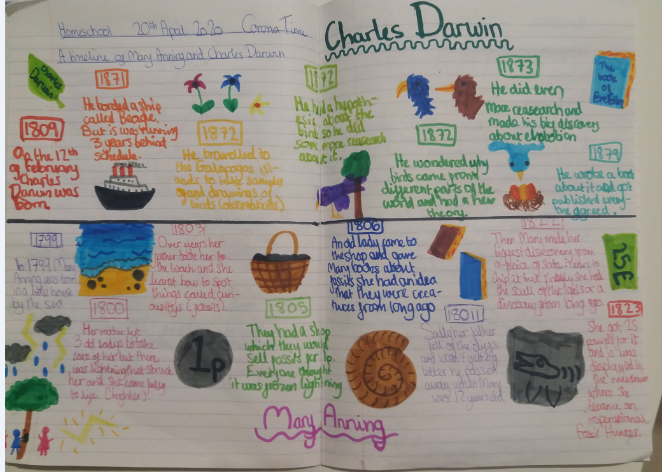 Homeschool 20th April 2020 Corona Time
A timeline of Mary Anning and Charles Darwin
Charles Darwin
Charles
Darwin
1809
On the 12th
of february
Charles
Darwin was
born
1871
He borded a ship
called Beagle.
But is was running
3 years behind
schedule
1872
He travelled to
the Galapagos
and drawings of
birds (observations)
1872
He had a hypoth-
esis about the
birds so he did
some more reasearch
about it.
1872
He wondered why
birds came from
different parts of the
world and had a new
theory.
1873
He did even
more reasearch and
made his big discovery
about evolution
The
book
of
Evolution
1879
He wrote a book
about it and got
published every-
one agreed.
1799
In 1799 Mary
Anning was born
in a tiny house
by the sea.
1800
Her mother let
3 old ladys to take
care of her but then
was lightning that struck
her and she came
1803
Over years her
father took her to
the beach and she
learnt how to spot
things called cur-
1805
They had a shop
which they would
sell fossils for 1p.
Everyone thought
it was frozen lightning
1p
1806
An old lady came to
the shop and gave
Mary books about
fossils she had an idea
that they were crea-
tures from long ago
18011
Sadly her father
fell of the cliffs
and wasn't getting
better he passed
away when Mary
was 12 years old
Then Mary made her
biggest discovery
the skull of
dinosaur from long ago
25£
1823
She got 25
pounds for it
and is was
displayed
became an
Fossil Hunter.
Mary Anning